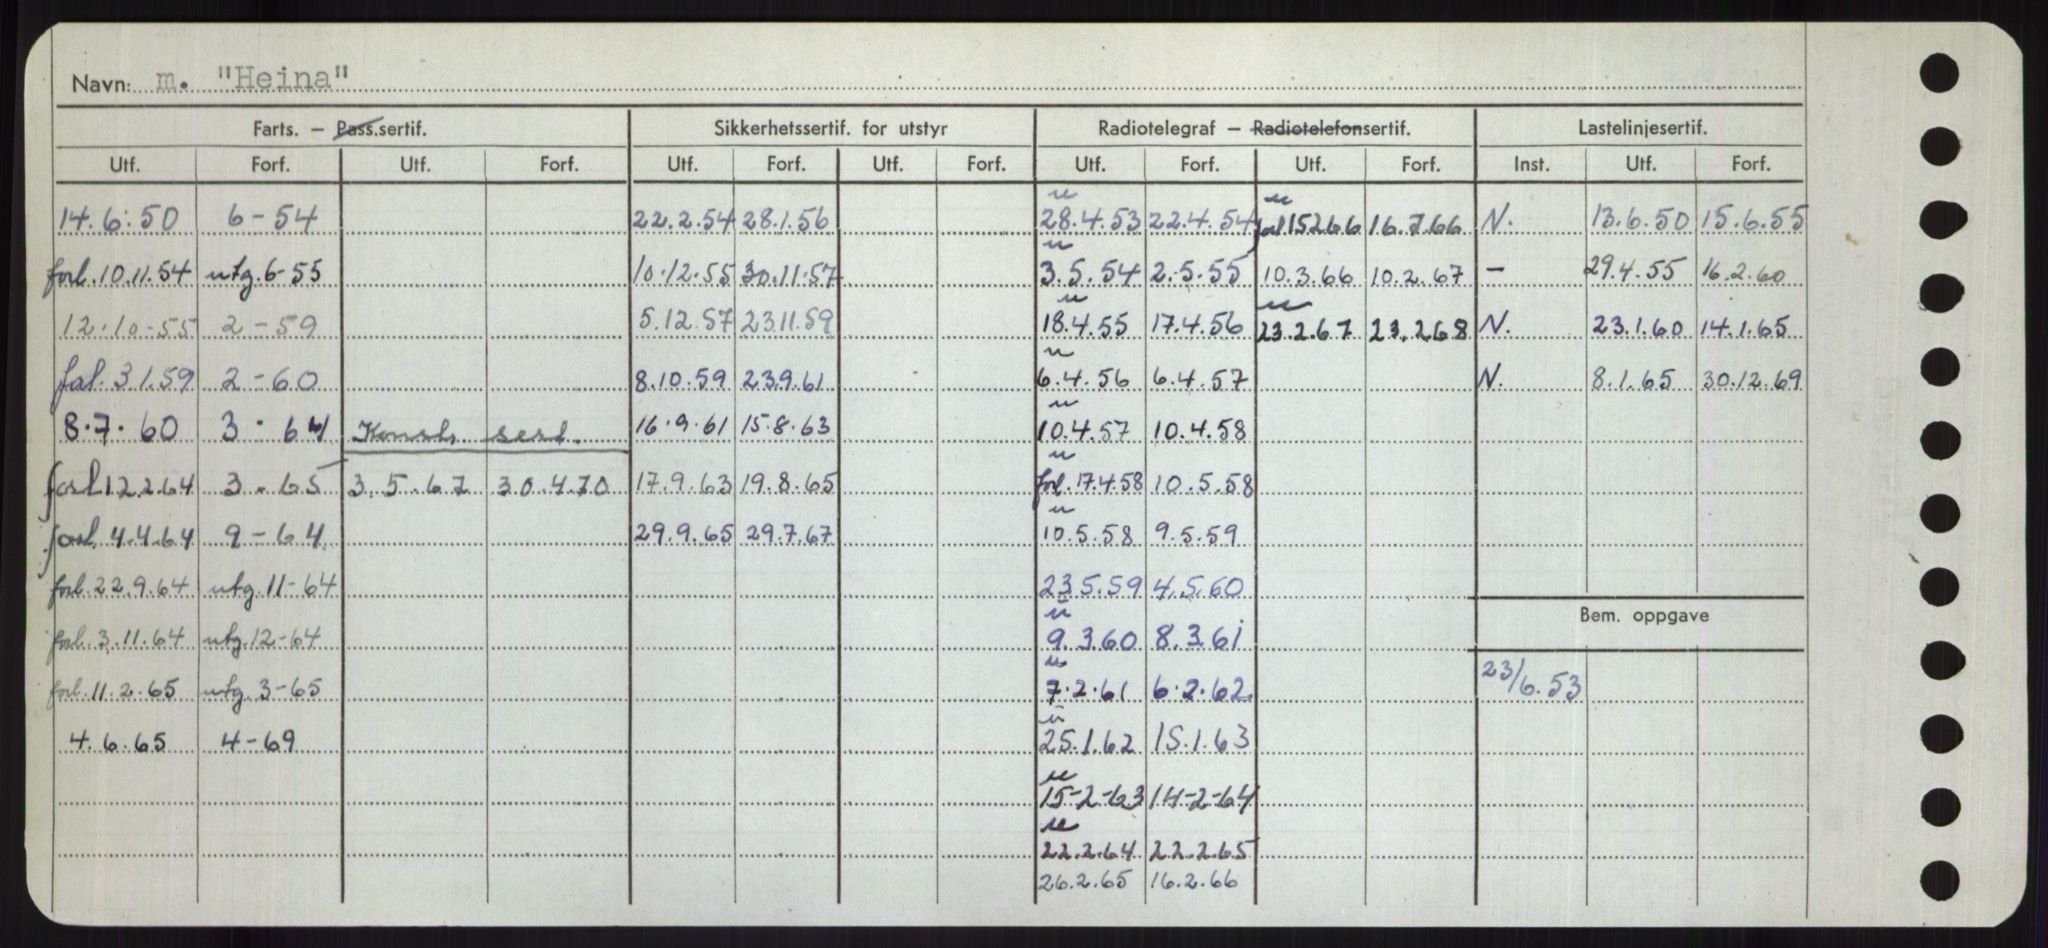 Navn: m. "Heina"
Farts. – Pass.sertif. Sikkerhetssertif. for utstyr Radiotelegraf – Radiotelefonsertif. Lastelinjesertif.
Utf. Forf. Utf. Forf. Utf. Forf. Utf. Forf. Utf. Forf. Utf. Forf. Inst. Utf. Forf.
14.6.50 6-54 22.2.54 28.1.56 28.4.53 22.4.54 15266 16.7.66 N. 13.6.50 15.6.55
forl.10.11.54 utg.6-55 10.12.55 30.11.57 3.5.54 2.5.55 10.3.66 10.2.67 – 29.4.55 16.2.60
12.10-55 2-59 5.12.57 23.11.59 18.4.55 17.4.56 23.2.67 23.268 N. 23.1.60 14.1.65
31.59 2-60 8.10.59 23.9.61 6.4.56 6.4.57 N. 8.1.65 30.12.69
8.7.60 3.64 Konstr. sert. 16.9.61 15.8.63 10.4.57 10.4.58
forl.12.2.64 3.65 3.5.67 30.4.70 17.9.63 19.8.65 forl.17.4.58 10.5.58
forl.4.4.64 9-64 29.9.65 29.7.67 10.5.58 9.5.59
forl.22.9.64 utg.11-64 23.5.59 4.5.60
Bem. oppgave
forl.3.11.64 utg.12-64 9.3.60 8.3.61
forl.11.2.65 utg.3-65 7.2.61 6.2.62 23/6.53
4.6.65 4-69 25.1.62 15.1.63
15-2-63 14-2-64
22.2.64 22.2.65
26.2.65 16.2.66